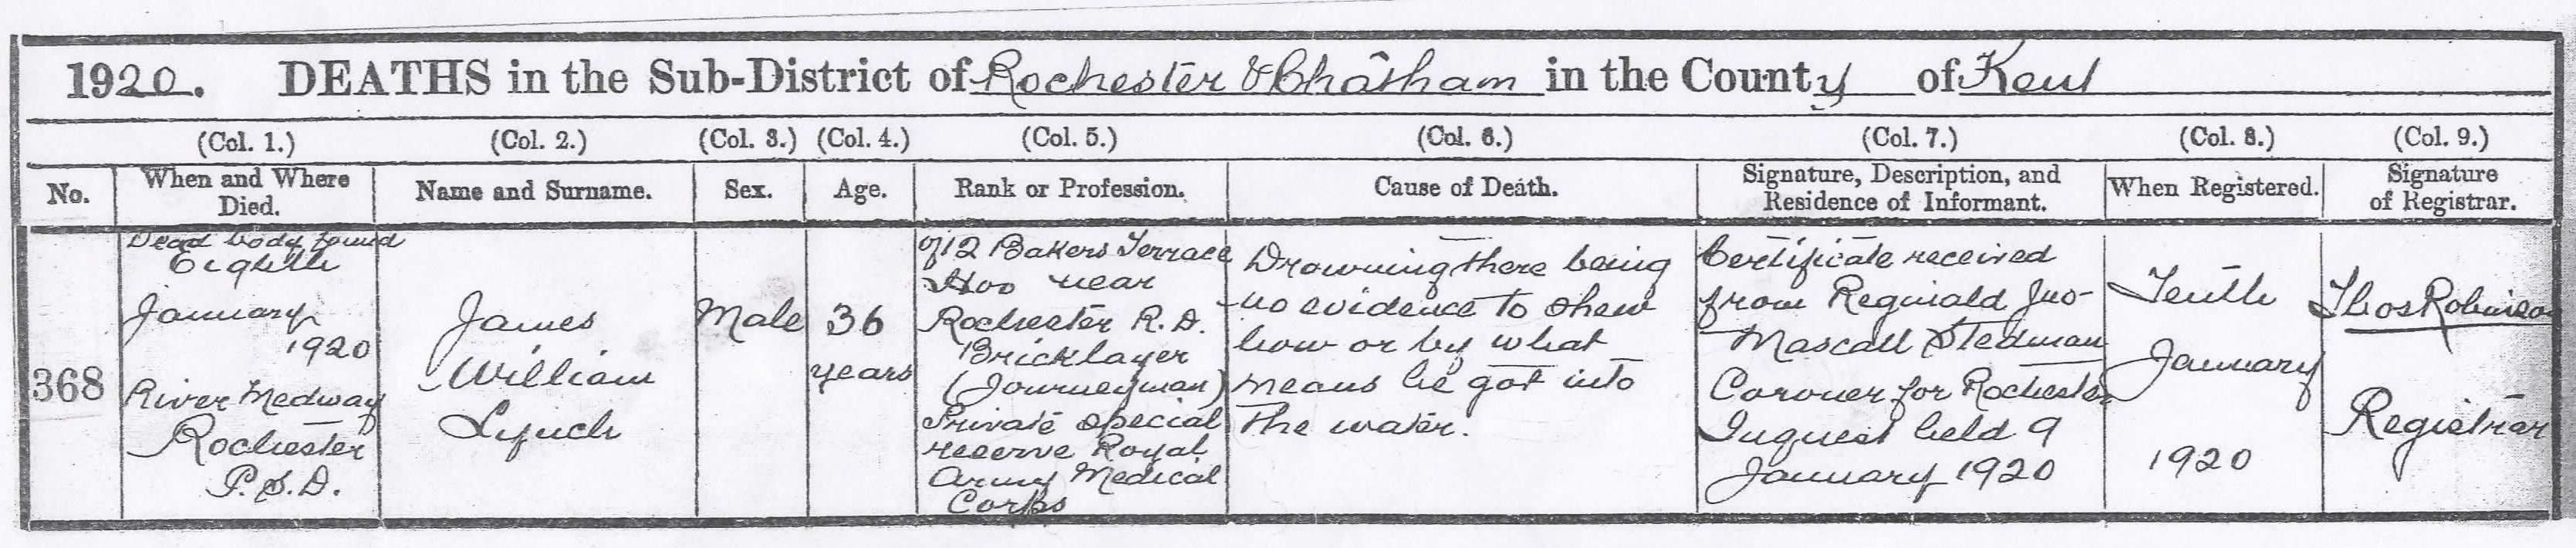 1920. DEATHS in the Sub-District of Rochester & Chatham in the County of Kent
(Col. 1.) (Col. 2.) (Col. 3.) (Col. 4.) (Col. 5.) (Col. 6.) (Col. 7.) (Col. 8.) (Col. 9.)
No.
When and Where
Died.
Name and Surname.
Sex.
Age.
Rank or Profession.
Cause of Death.
Signature, Description, and
Residence of Informant.
When Registered.
Signature
of Registrar.
368
Dead body found
Eighth
January
1920
River Medway
Rochester
P.S.D.
James
William
Lynch
Male
36
years
of 12 Bakers Terrace
Hoo near
Rochester R.D.
Bricklayer
(Journeyman)
Private special
reserve Royal
Army Medical
Corps
Drowning there being
no evidence to shew
how or by what
means he got into
the water.
Certificate received
from Reginald Jno-
Mascall Stedman
Coroner for Rochester
Inquest held 9
January 1920
Tenth
January
1920
Thos Robinson
Registrar